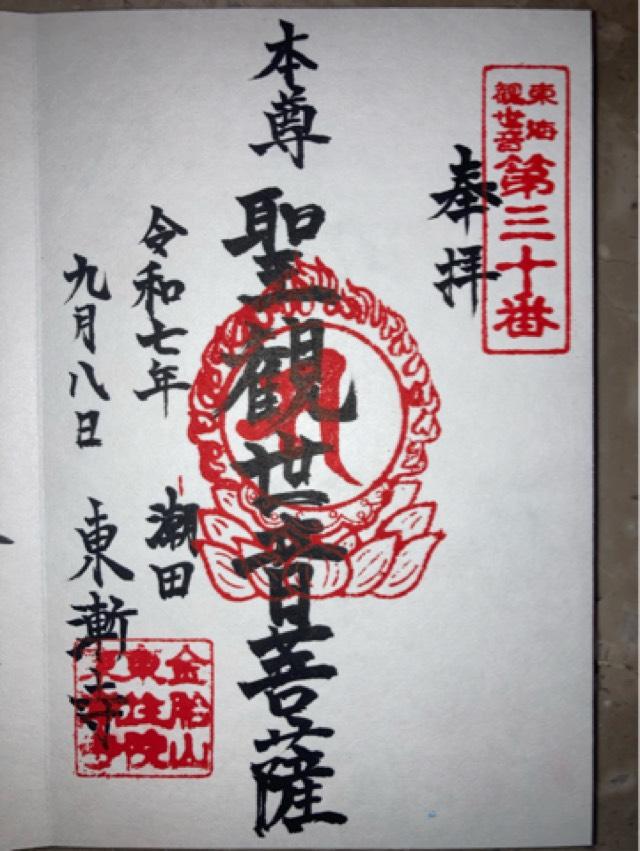 東海
観世音
第三十番
奉拝
本尊
聖観世音菩薩
令和七年
九月八日
潮田
東漸寺
金胎山
東住院
東漸寺